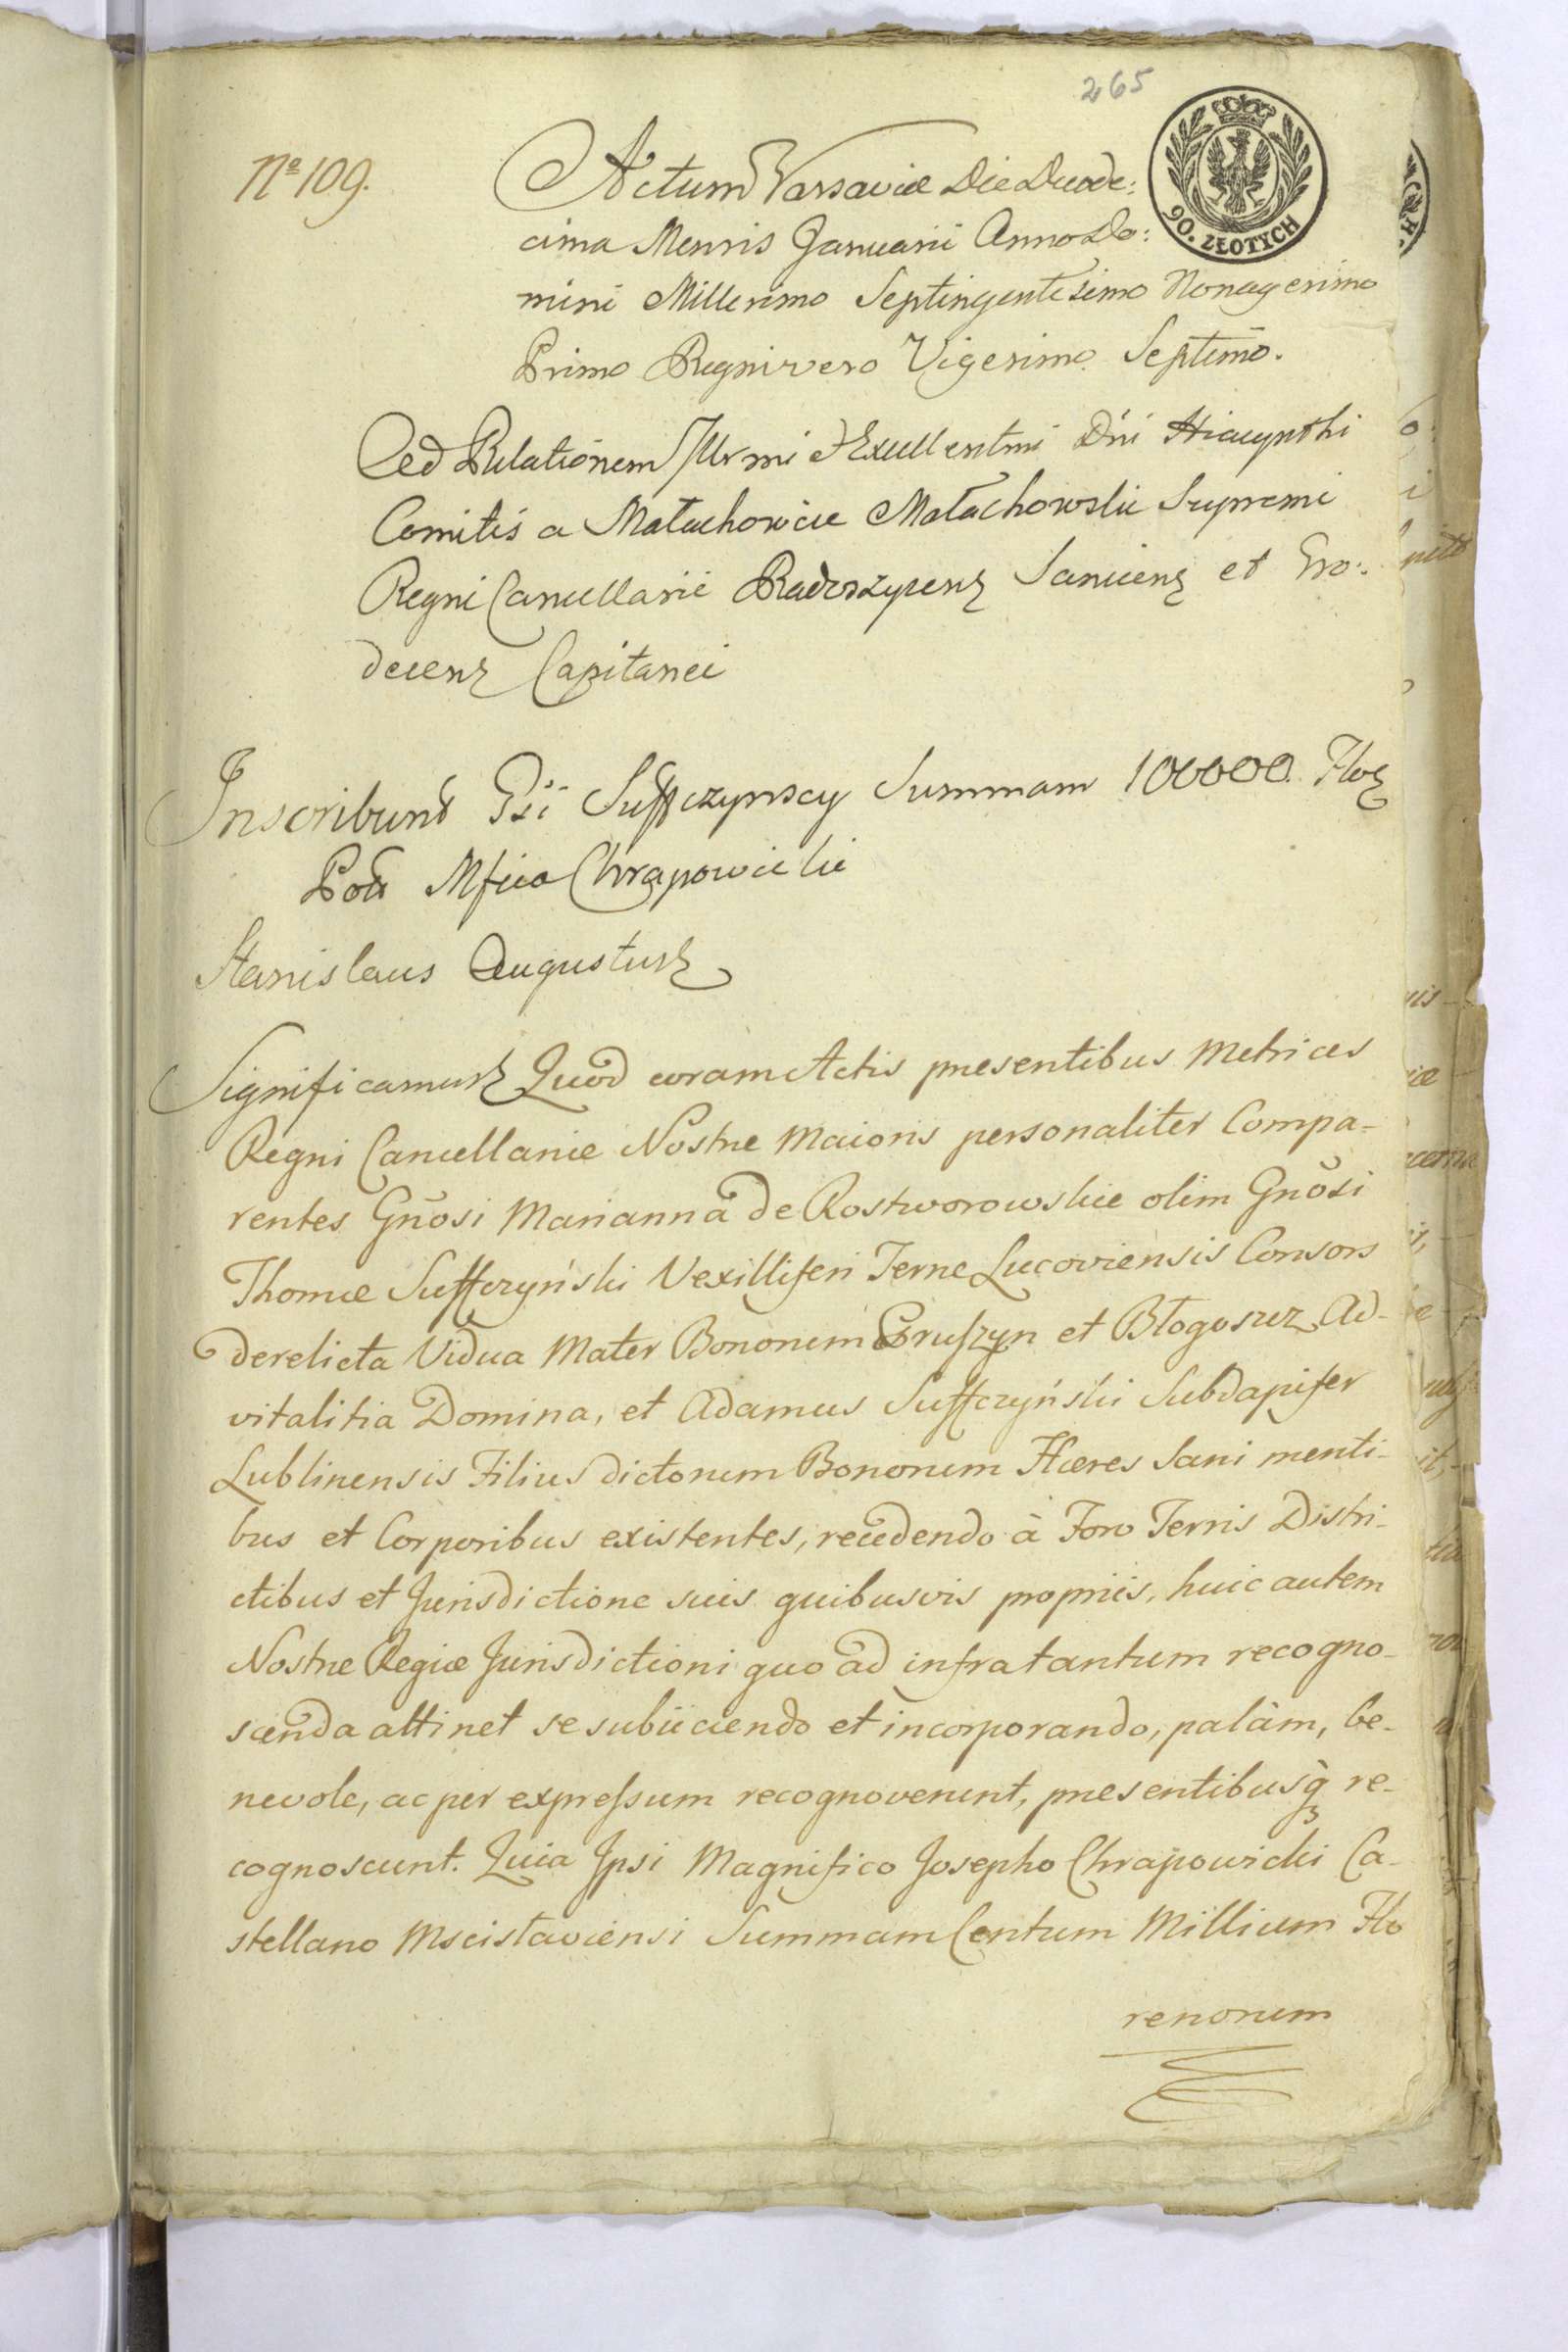 265
Nº 109.
Actum Varsaviæ Die Duode:
cima Mensis Januarii Anno Do:
90. ZŁOTYCH
mini Millesimo Septingentesimo Nonagesimo
Primo Regni vero Vigesimo Septimo.
Ad Relationem Illrmi Excellentmi Dni Hiacynthi
Comitis a Małachowice Małachowski Supremi
Regni Cancellarii Radoszycens Sanicens et Gro:
decens Capitanei
Inscribunt Gsi Suffczynscy Summam 100000. Flos
Mfico Chrapowicki
Stanislaus Augustus
Significamus Quod coram Actis presentibus Metrices
Regni Cancellariæ Nostre Maioris personaliter Compa-
rentes Gnosi Marianna de Rostworowskie olim Gnosi
Thomæ Suffczyński Vexilliferi Terre Lucoviensis Consors
derelicta Vidua Mater Bonorum Pruszyn et Błogoszcz Ad-
vitalitia Domina, et Adamus Suffczyński Subdapifer
Lublinensis Filius dictorum Bonorum Hæres Sani menti-
bus et Corporibus existentes, recedendo à Foro Terris Distri-
ctibus et Jurisdictione suis quibusvis propriis, huic autem
Nostræ Regiæ Jurisdictioni quo ad infra tantum recogno-
scenda attinet se subiiciendo et incorporando, palàm, be-
nevole, ac per expressum recognoverunt, presentibusq re-
cognoscunt. Quia Ipsi Magnifico Josepho Chrapowicki Ca-
stellano Mscisłaviensi Summam Centum Millium Flo
renorum